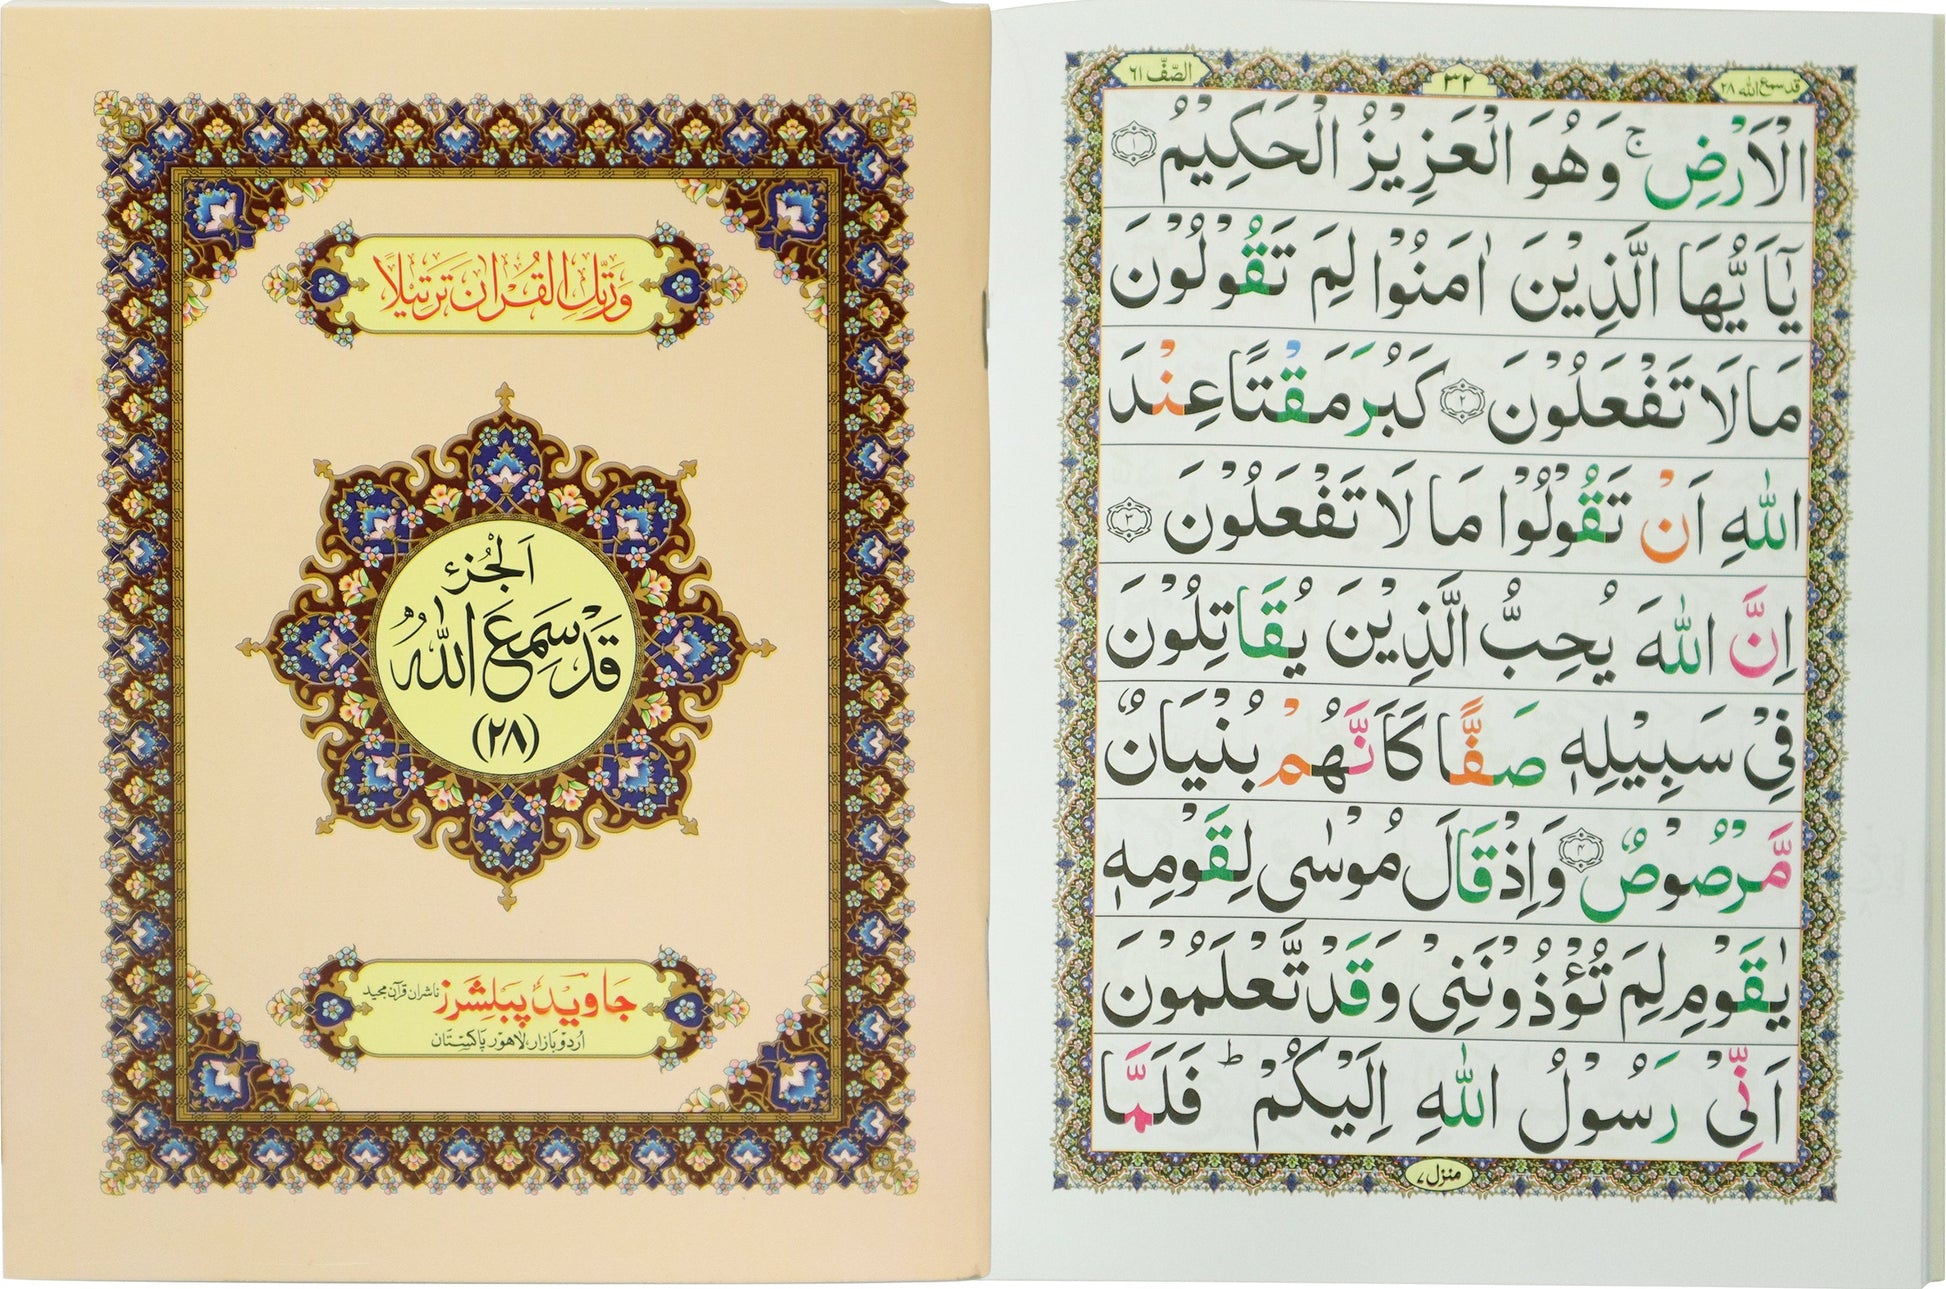 وَرَتِّلِ الْقُرْاٰنَ تَرْتِيْلًا
اَلْجُزْءُ
قَدْ سَمِعَ اللّٰهُ
(۲۸)
جاوید پبلشرز ناشران قرآن مجید
اُردو بازار، لاہور پاکستان
قد سمع اللہ ۲۸
۳۲
الصّفّ ۶۱
الْاَرْضِ ۚ وَهُوَ الْعَزِيْزُ الْحَكِيْمُ ۱
يٰۤاَيُّهَا الَّذِيْنَ اٰمَنُوْا لِمَ تَقُوْلُوْنَ
مَا لَا تَفْعَلُوْنَ ۲ كَبُرَ مَقْتًا عِنْدَ
اللّٰهِ اَنْ تَقُوْلُوْا مَا لَا تَفْعَلُوْنَ ۳
اِنَّ اللّٰهَ يُحِبُّ الَّذِيْنَ يُقَاتِلُوْنَ
فِيْ سَبِيْلِهٖ صَفًّا كَاَنَّهُمْ بُنْيَانٌ
مَّرْصُوْصٌ ۴ وَاِذْ قَالَ مُوْسٰى لِقَوْمِهٖ
يٰقَوْمِ لِمَ تُؤْذُوْنَنِيْ وَقَدْ تَّعْلَمُوْنَ
اَنِّيْ رَسُوْلُ اللّٰهِ اِلَيْكُمْ ؕ فَلَمَّا
منزل ۷